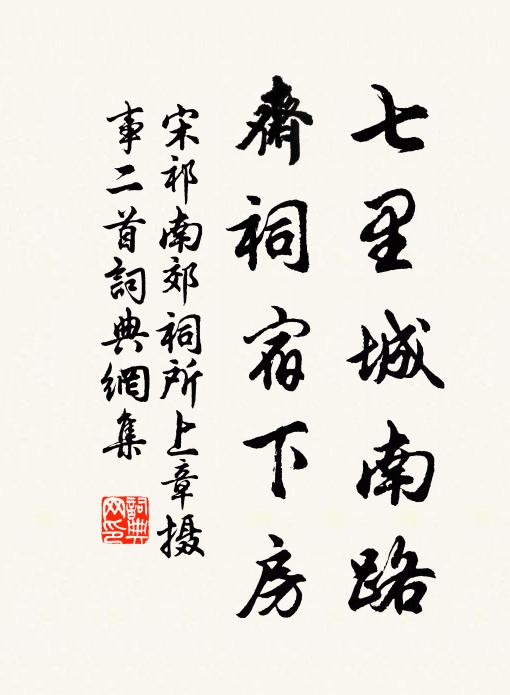 七里城南路
齋祠宿下房
宋祁南郊祠所上章摄
事二首詞典網集
詞典
网印